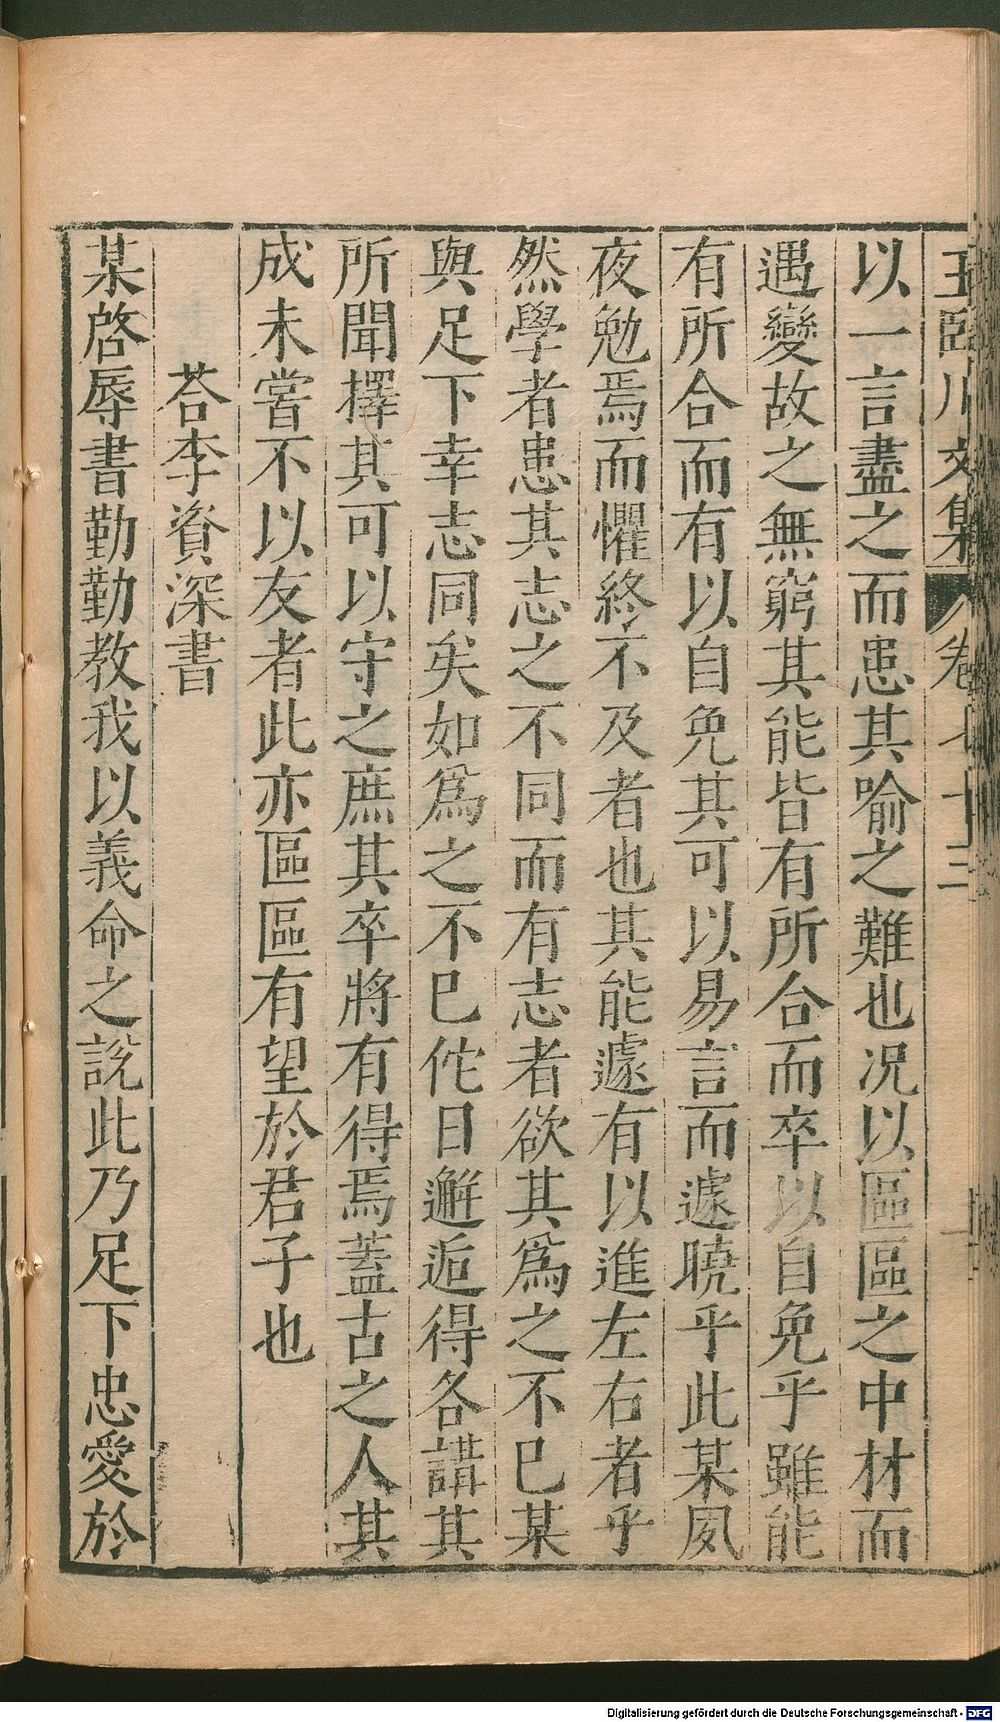 王臨川文集 卷七十三
以一言盡之而患其喻之難也况以區區之中材而
遇變故之無窮其能皆有所合而卒以自免乎雖能
有所合而有以自免其可以易言而遽曉乎此某夙
夜勉焉而懼終不及者也其能遽有以進左右者乎
然學者患其志之不同而有志者欲其爲之不巳某
與足下幸志同矣如爲之不巳佗日邂逅得各講其
所聞擇其可以守之庶其卒將有得焉蓋古之人其
成未嘗不以友者此亦區區有望於君子也
荅李資深書
某啓辱書勤勤教我以義命之說此乃足下忠愛於
Digitalisierung gefördert durch die Deutsche Forschungsgemeinschaft - DFG